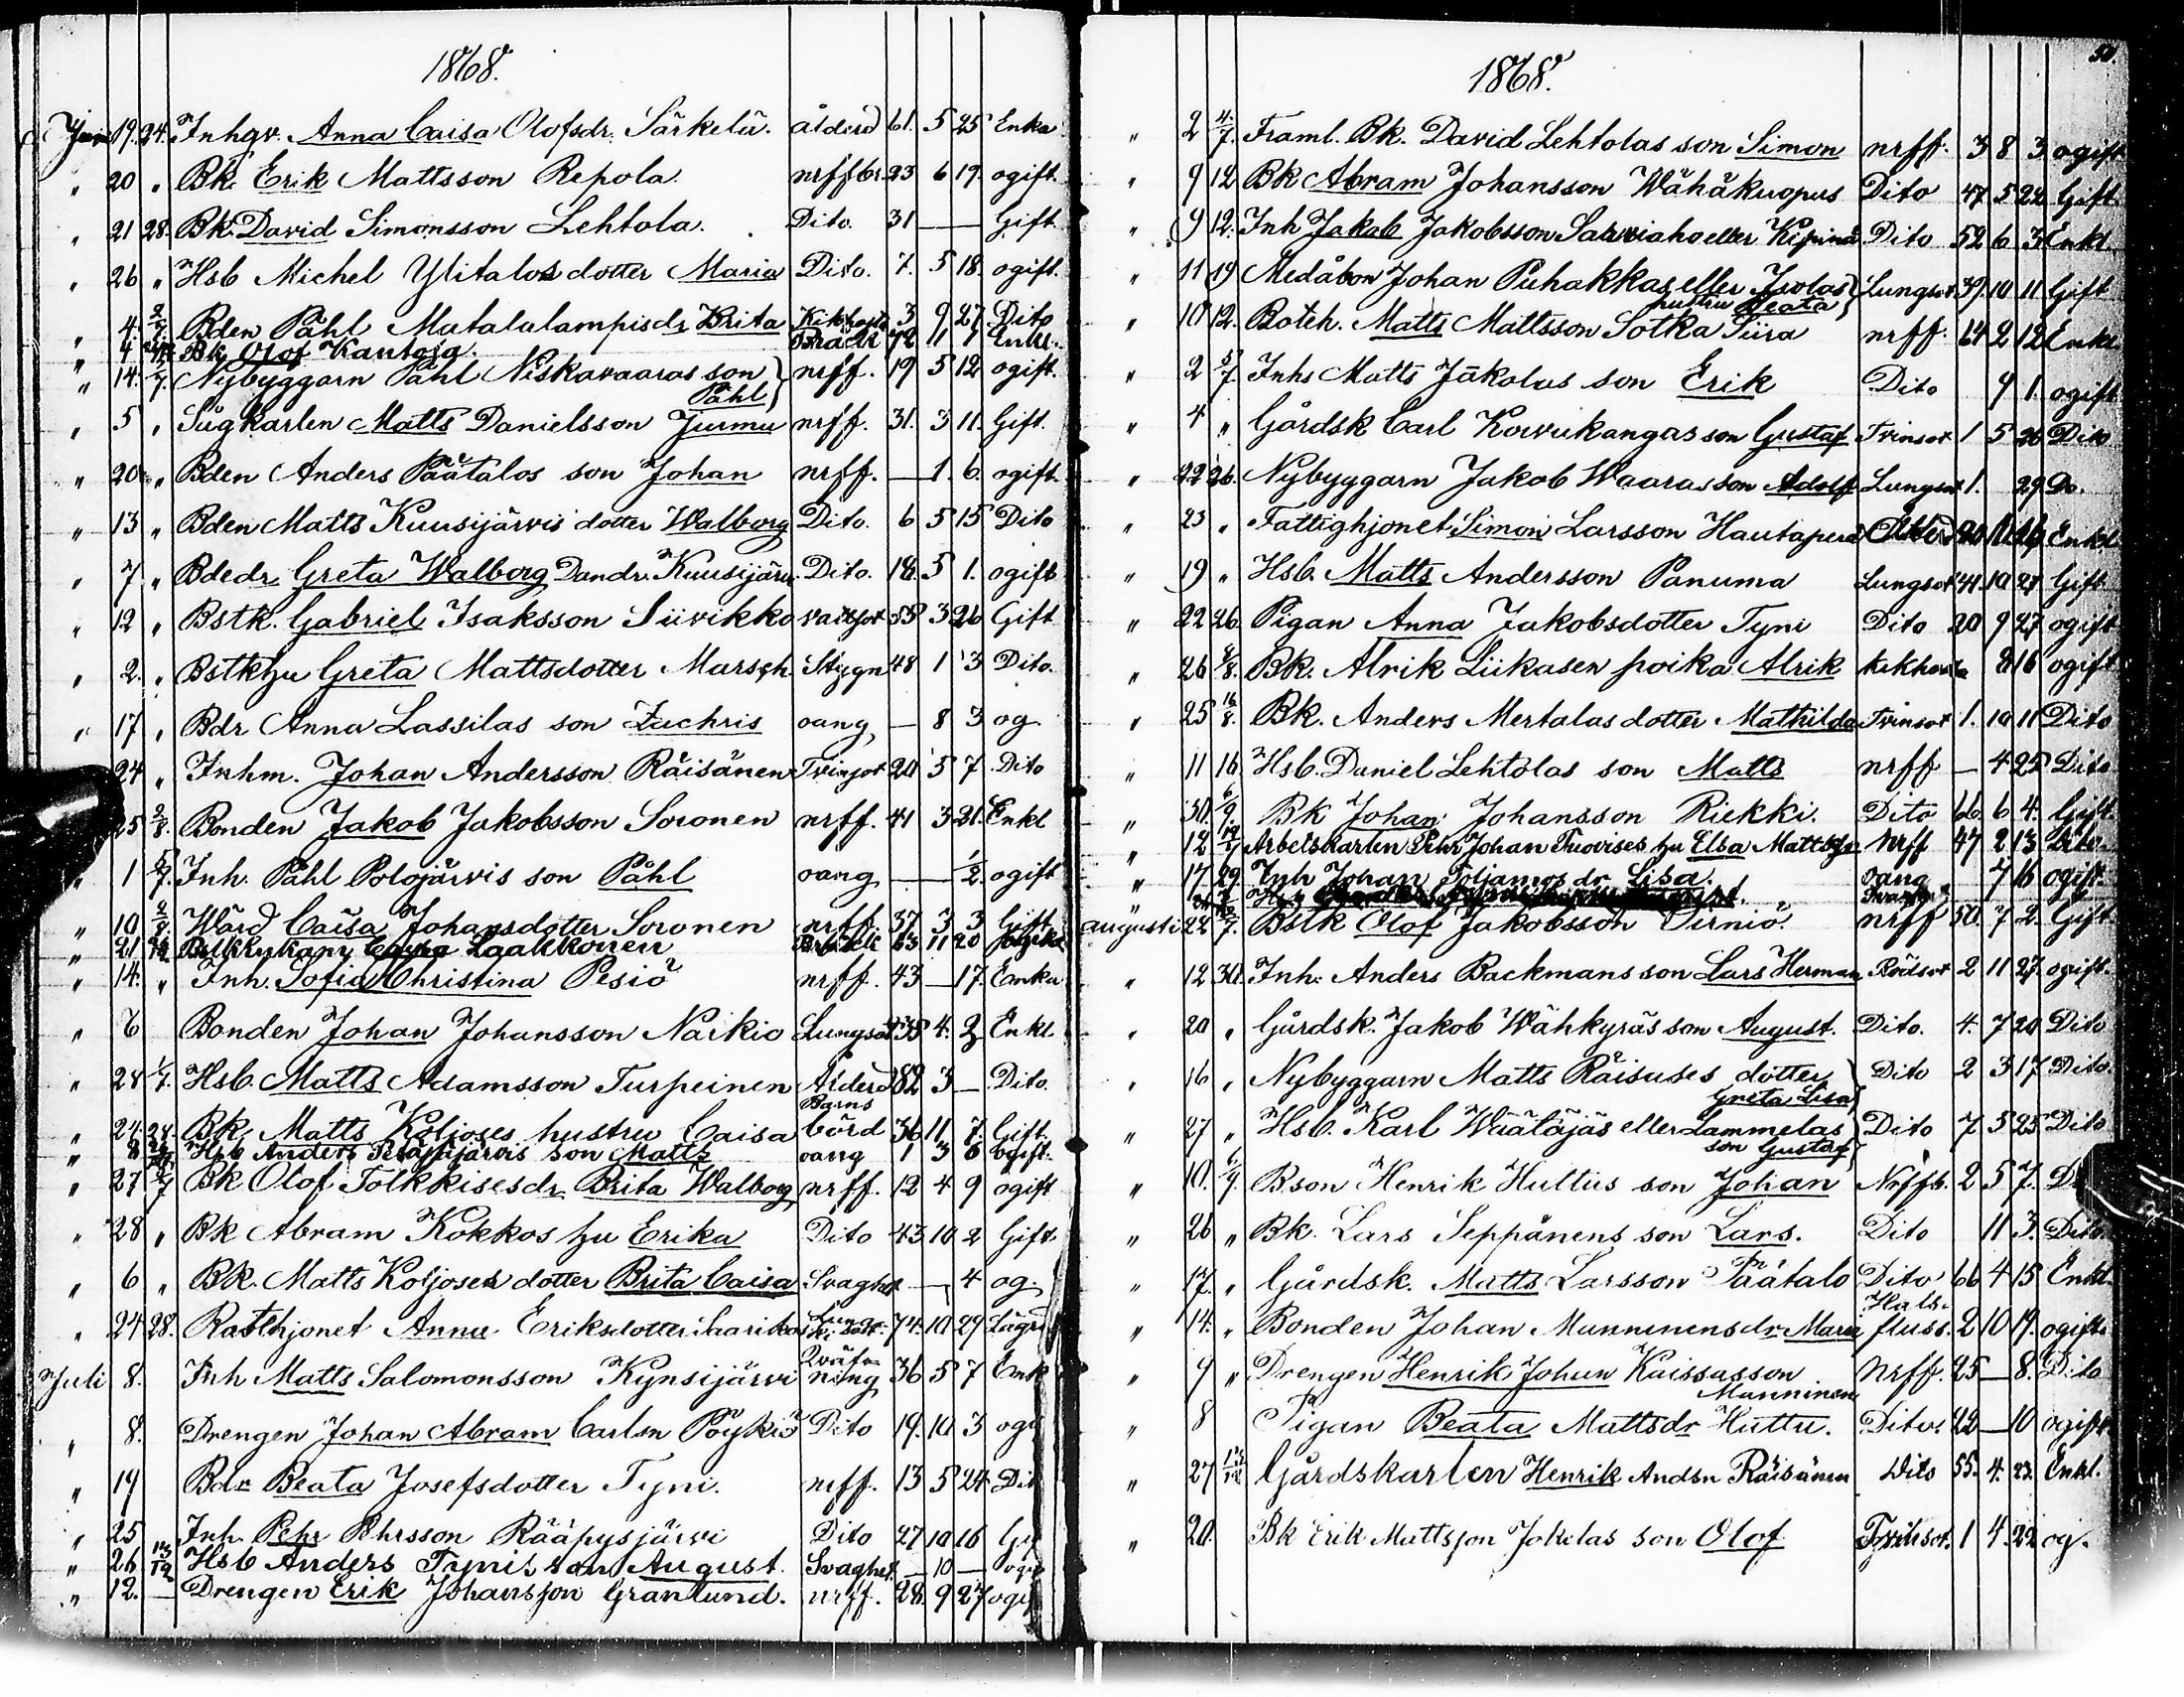 1868.
Juni 19. 24. Inhgv. Anna Caisa Olofsdr. Särkelä. ålderd 61. 5 25 Enka
" 20 " Bk. Erik Mattsson Repola. nrffbr. 23 6 19. ogift.
" 21 28. Bk. David Simonsson Lehtola. Dito. 31 — — Gift
" 26 " Hsb Michel Ylitalos dotter Maria Dito. 7. 5 18. ogift.
" 4. Bden Påhl Matalalampis dr Brita Kikhosta 3 9 27 Dito
" 4 Bk Olof Kantoja. Enkl.
" 14. Nybyggarn Påhl Niskavaaras son nrff. 19 5 12 ogift.
Påhl
" 5 " Sågkarlen Matts Danielsson Jurmu nrff. 31. 3 11. Gift.
" 20 " Bden Anders Päätalos son Johan nrff. — 1. 6. ogift.
" 13 " Bden Matts Kuusijärvis dotter Walborg Dito. 6 5 15 Dito
" 7 " Bdedr Greta Walborg Dandr. Kuusijärv. Dito. 18. 5 1. ogift
" 12 " Bstk. Gabriel Isaksson Siivikko vattsot 55 3 26 Gift
" 2. " Bstkhu Greta Mattsdotter Marsch. Stygn 48 1 3 Dito.
" 17 " Bdr Anna Lassilas son Zachris oang — 8 3 og
24 " Inhm. Johan Andersson Räisänen Tvinsot 20 5 7 Dito
25 2/8. Bonden Jakob Jakobsson Soronen nrff. 41 3 21. Enkl
" 1 5/7. Inh. Påhl Polojärvis son Påhl oang — — 1/2. ogift
" 10 2/8. Wärd Caisa Johansdotter Soronen nrff. 37 3 3 Gift
" 21 Laakkonen 63 11 20
" 14. " Inh. Sofia Christina Pesiö nrff. 43 — 17. Enka
" 6 Bonden Johan Johansson Narkio Lungsot 38 4. 2 Enkl
" 28 1/7. Hsb. Matts Adamsson Turpeinen Ålderd 82 3 — Dito.
Barns
" 24. 24. Bk. Matts Koljoses hustru Caisa börd 36 11 7. Gift.
" 8 Hsb Anders son Matts oang 1 3 6 ogift.
" 27 Bk Olof Tolkkises dr Brita Walborg nrff. 12 4 9 ogift
" 28 " Bk Abram Kokkos hu Erika Dito 43 10 2 Gift
" 6 " Bk. Matts Koljoses dotter Brita Caisa Svaghet — 4 og.
" 24 28. Rotehjonet Anna Eriksdotter Saariko 74. 10 29
Qväf-
Juli 8. Inh Matts Salomonsson Kynsijärvi ning 36 5 7 Enk
" 8. Drengen Johan Abram Carlsn Pöykiö Dito 19. 10 3 ogi
" 17 Bdr Beata Josefsdotter Tyni. nrff. 13 5 24 Dit
" 25 Inh. Pehr Pehrsson Rääpysjärvi Dito 27 10 16 Gif
" 26 Hsb Anders Tynis son August. Svaghet — 10 — ogi
" 12. — Drengen Erik Johansson Granlund. nrff. 28 9 27 ogif
50.
1868.
" 2 4/7. Framl. Bk. David Lehtolas son Simon nrff. 3 8 3. ogift
" 9 12 Bk Abram Johansson Wähäkuopus Dito 47 5 22 Gift.
" 9 12. Inh Jakob Jakobsson Sarwiaho eller Kipinä Dito 52 6 3 Enkl
" 11 19 Medåbon Johan Puhakkas eller Isolas Lungsot 39. 10 11 Gift
hustru Beata
" 10 12. Boteh. Matts Mattsson Sotka Tiira nrff. 64 2 12 Enkl
" 2 5/7. Inhs Matts Jäkälas son Erik Dito 9 1. ogift
" 4 " Gårdsk Carl Korvukangas son Gustaf Tvinsot 1 5 26 Dito
" 22 26. Nybyggarn Jakob Waaras son Adolf Lungsot 1. 29. Do.
" 23 " Fattighjonet Simon Larsson Hautaperä Enkl
" 19 " Hsb. Matts Andersson Panuma Lungsot 41. 10 27 Gift
" 22 26. Pigan Anna Jakobsdotter Tyni Dito 20 9 27 ogift
" 26 2/8. Bk. Alrik Liikasen poika Alrik kikhosta 8 16 ogift
" 25 16/8. Bk. Anders Mertalas dotter Mathilda Tvinsot 1. 10 11 Dito
" 11 16 Hsb. Daniel Lehtolas son Matts nrff — 4 25 Dito
" 30. 6/9. Bk Johan Johansson Riekki. Dito 66. 6 4. Gift.
" 12 Arbetskarlen Pehr Johan Tuovises hu Elsa Mattsdr nrff 47 2 13 Dito.
" 17 29. Inh Johan Poljamos dr Lisa. oang 7 16 ogift.
augusti 22 Bstk Olof Jakobsson Virniö. nrff 50. 7 2. Gift
" 12 30. Inh. Anders Backmans son Lars Herman Rödsot 2 11 27. ogift.
" 20 " Gårdsk. Jakob Wähkyräs son August. Dito. 4. 7 20 Dito
" 16 " Nybyggarn Matts Räisäses dotter Dito 2 3 17 Dito.
Greta Lisa
" 27 " Hsb. Karl Wäätäjäs eller Lammelas Dito 7 5 25 Dito
son Gustaf
" 10. 6/9. Bson Henrik Huttus son Johan Nrffb. 2 5 7. D
" 26 " Bk. Lars Seppänens son Lars. Dito 11 3. Dito.
" 17. " Gårdsk. Matts Larsson Päätalo Dito 66 4 15 Enkl.
Hals-
" 14. " Bonden Johan Munninens dr Maria fluss. 2 10 19. ogift.
" 9 " Drengen Henrik Johan Kaissasson Nrff. 25 — 8. Dito
Manninen
" 8 Pigan Beata Mattsdr Huttu. Dito. 22 — 10 ogift
" 27 Gårdskarlen Henrik Andsn Räisänen Dito 55. 4. 23. Enkl.
" 20. Bk Erik Mattsson Jokelas son Olof Tvinsot. 1 4. 22 og.